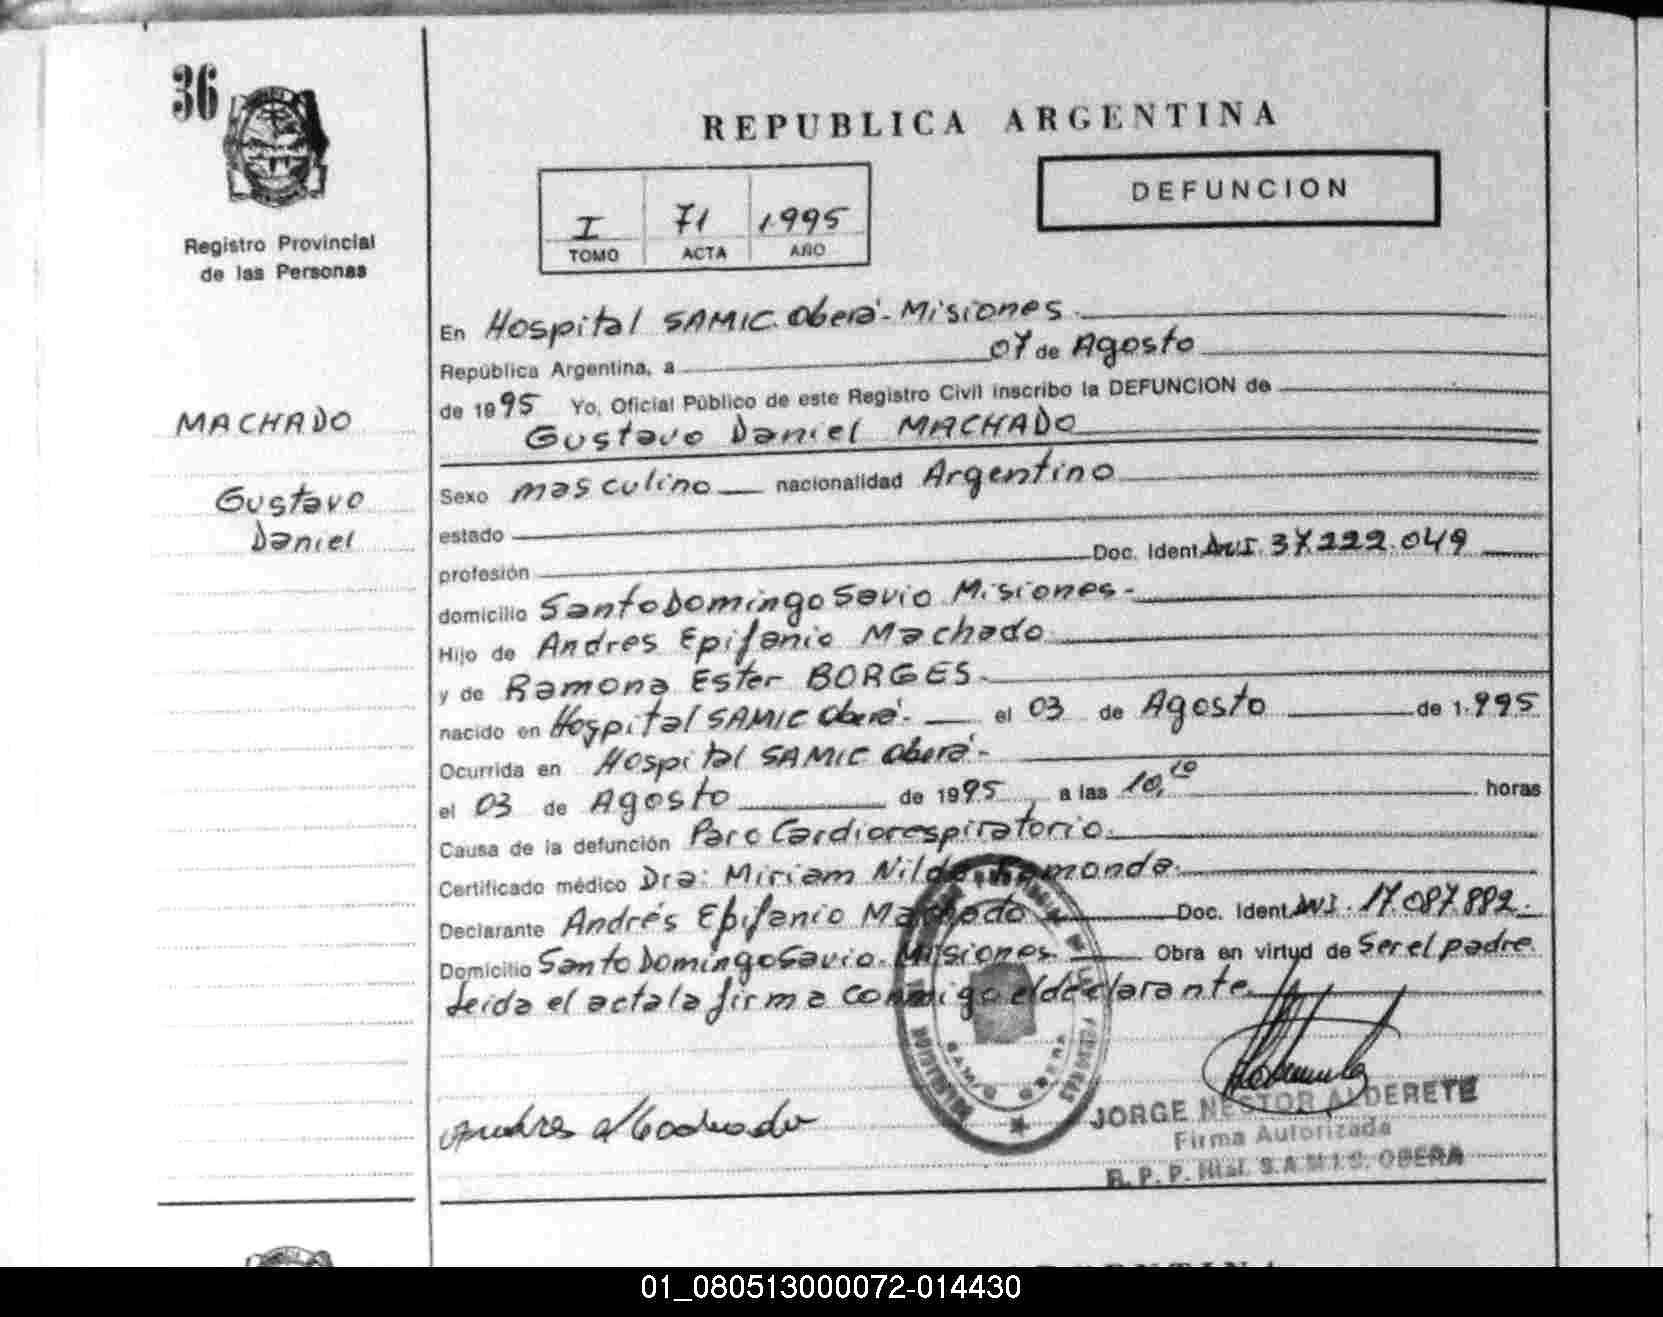 36
REPUBLICA ARGENTINA
I 71 1.995
TOMO ACTA AÑO
DEFUNCION
Registro Provincial
de las Personas
MACHADO
Gustavo
Daniel
En Hospital SAMIC. Oberá - Misiones
República Argentina, a 07 de Agosto
de 1995 Yo, Oficial Público de este Registro Civil inscribo la DEFUNCION de
Gustavo Daniel MACHADO
Sexo masculino nacionalidad Argentino
estado
profesión Doc. Ident. DNI. 37.222.049
domicilio Santo Domingo Savio Misiones -
Hijo de Andres Epifanio Machado
y de Ramona Ester BORGES.
nacido en Hospital SAMIC Oberá - el 03 de Agosto de 1.995
Ocurrida en Hospital SAMIC Oberá -
el 03 de Agosto de 1995, a las 10, horas
Causa de la defunción Paro Cardiorespiratorio.
Certificado médico Dra: Miriam Nilda Ramonda.
Declarante Andrés Epifanio Machado Doc. Ident. DNI. 17.087.882.
Domicilio Santo Domingo Savio. Misiones Obra en virtud de Ser el padre
Leida el acta la firma conmigo el declarante
Andres Machado
SAMIC OBERA
JORGE NESTOR ALDERETE
Firma Autorizada
R. P. P. Htal. S.A.M.I.C. OBERA
01_080513000072-014430